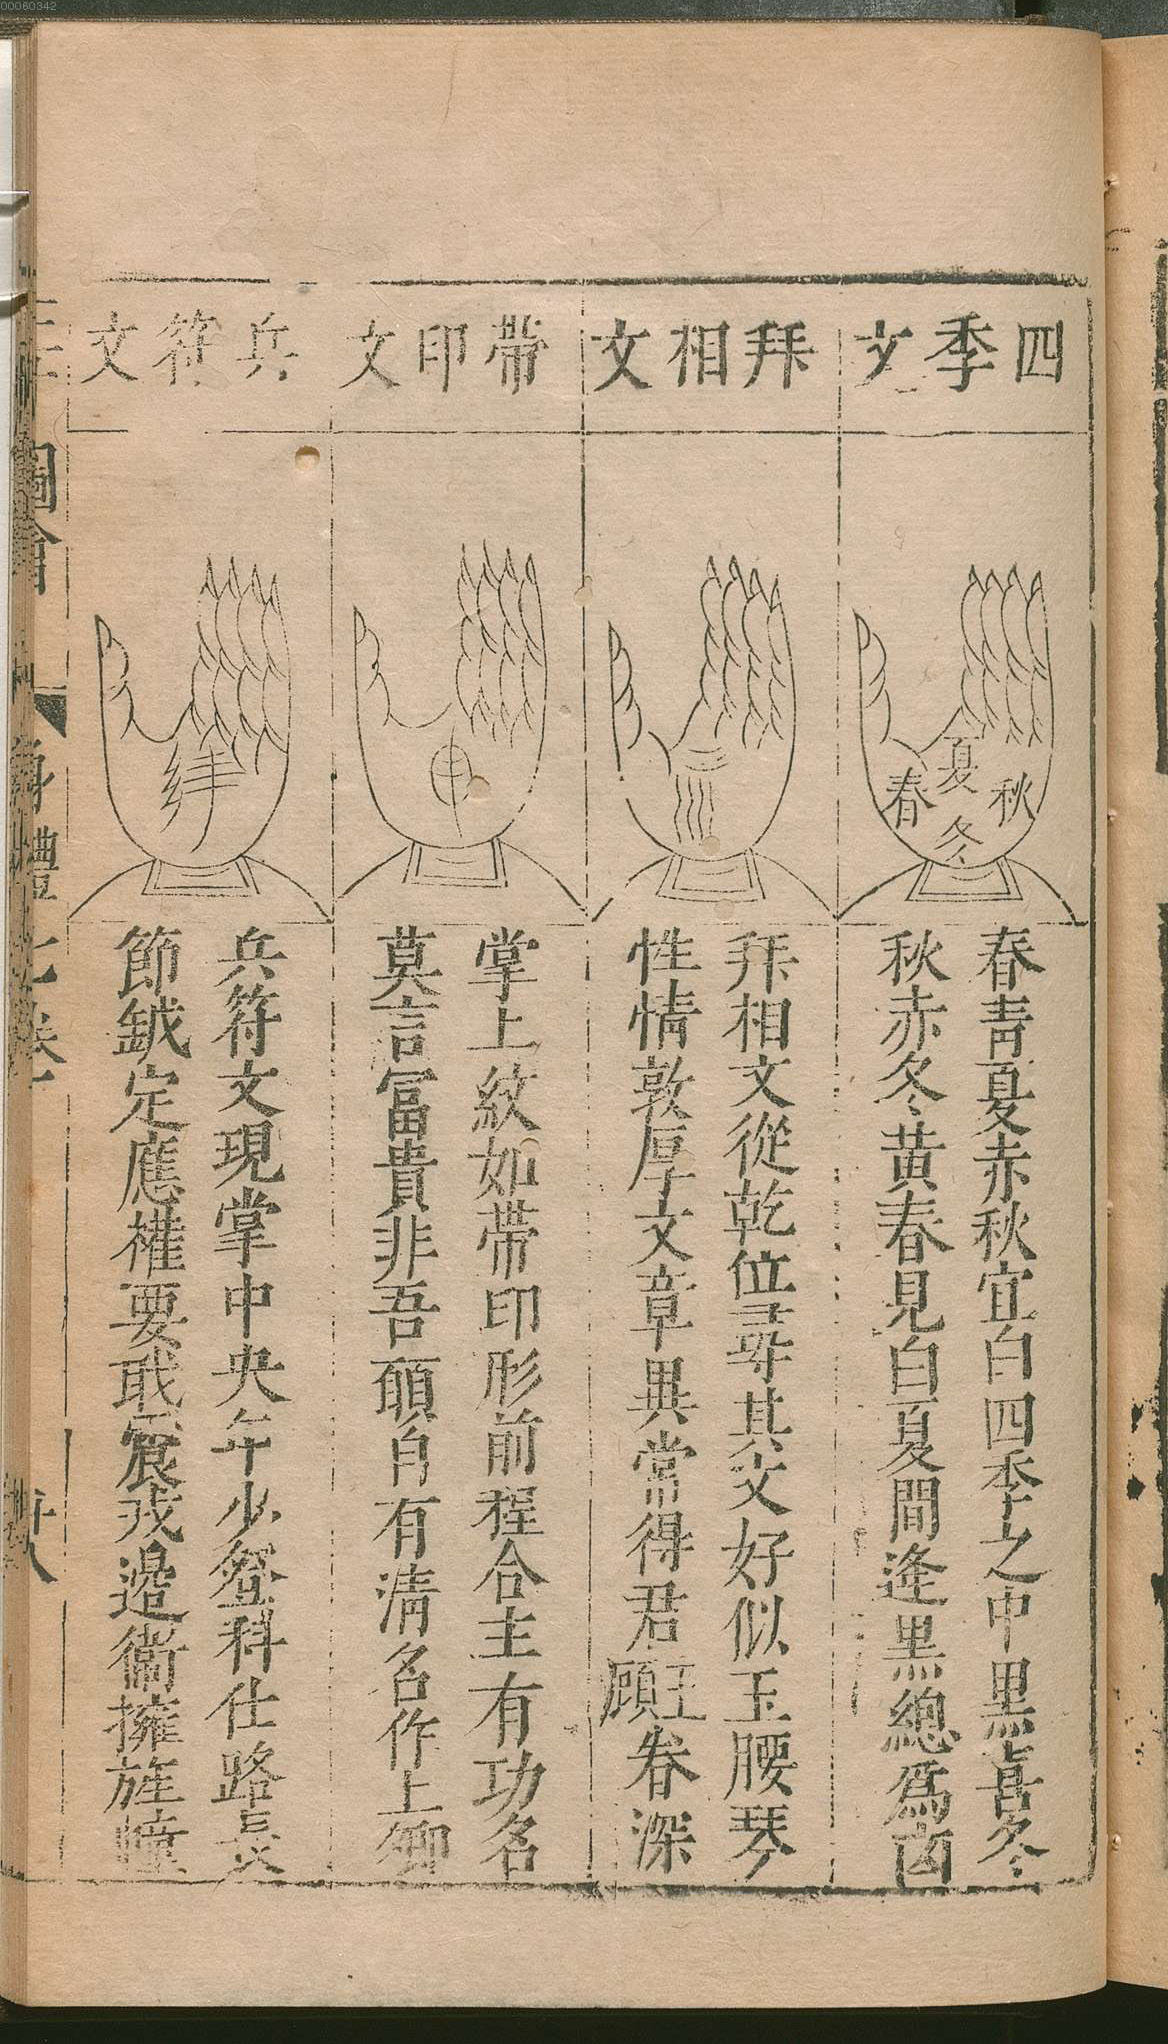 00060342
四季文
夏
春
秋
冬
春青夏赤秋宜白四季之中黑喜冬
秋赤冬黄春見白夏間逢黑總爲凶
拜相文
拜相文從乾位尋其文好似玉腰琴
性情敦厚文章異常得君王顧眷深
帶印文
掌上紋如帶印形前程合主有功名
莫言富貴非吾願自有清名作上卿
兵符文
兵符文現掌中央年少登科仕路長
節鉞定應權要職震戎邊衛擁旌幢
圖會
身體七卷